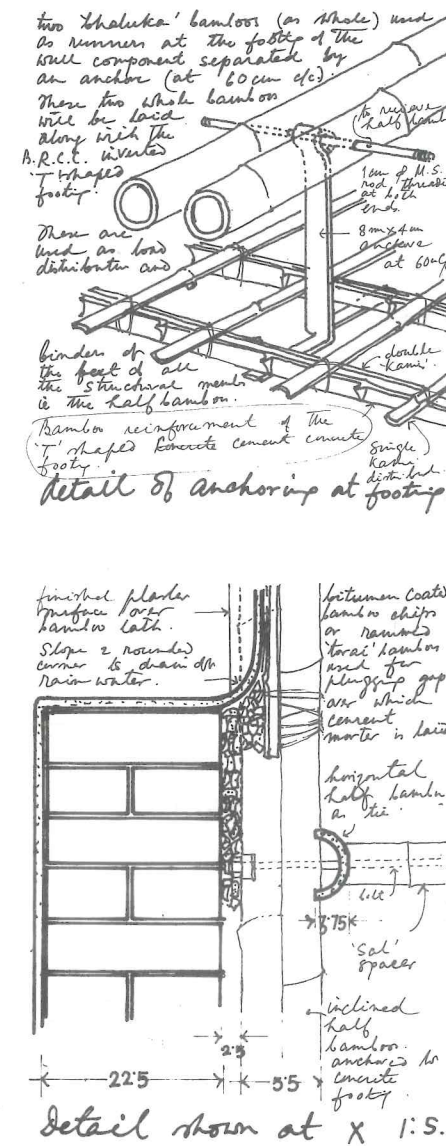 two 'bhaluka' bamboos (as whole) used
as runners at the footing of the
wall component separated by
an anchor (at 60cm c/c).
These two whole bamboos
will be laid
along with the
B.R.C.C. inverted
'T' shaped
footing.
These are
used as load
distributors and
binders of
the feet of all
the structural members
ie the half bamboo.
(to receive
half bamb
1cm φ M.S.
rod threaded
at both
ends.
8m x 4cm
anchore
at 60c/c
double
'Kami'.
Single
Kami
distribut.
Bamboo reinforcement of the
'T' shaped concrete cement concrete
footing.
detail of anchoring at footing
finished plaster
surface over
bamboo lath.
Slope & rounded
corner to drain off
rain water.
bitumen coated
bamboo chips
or rammed
'tarai' bamboo
used for
plugging gap
over which
cement
morter is laid
horizontal
half bambu
as tie.
bolt
3.75
'Sal'
spacer
inclined
half
bamboo.
anchored to
concrete
footing.
2.5
22.5
5.5
Detail shown at X 1:5.